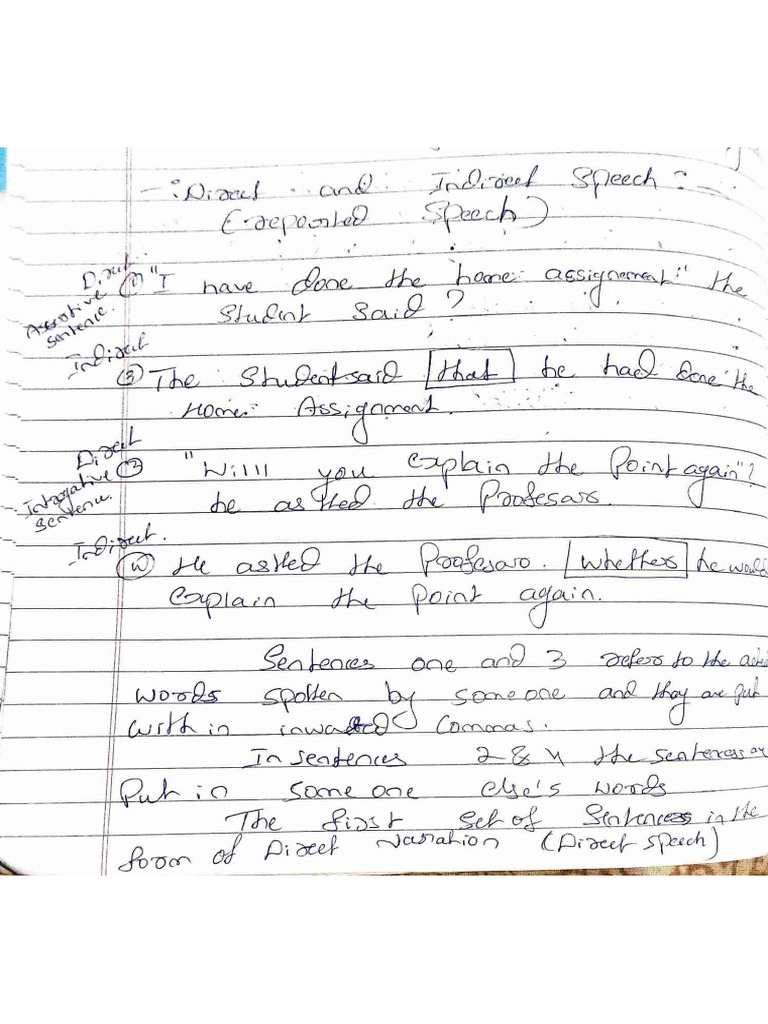 -: Direct and Indirect Speech :-
(reported Speech)
Direct
Assertive sentence.
① "I have done the home assignement" the
Student Said?
Indirect
③ The Student said that he had done the
Home Assignment.
Direct
Introgative sentence.
② "Willl you explain the Point again"?
he asked the Profesar.
Indirect.
④ He asked the Profesar. whether he would
explain the point again.
Sentences one and 3 refer to the
words spoken by someone and they are put
with in inwarted Commas.
In sentences 2 & 4 the sentences are
Put in some one else's words
The first set of Sentences in the
form of Direct Narration (Direct speech)